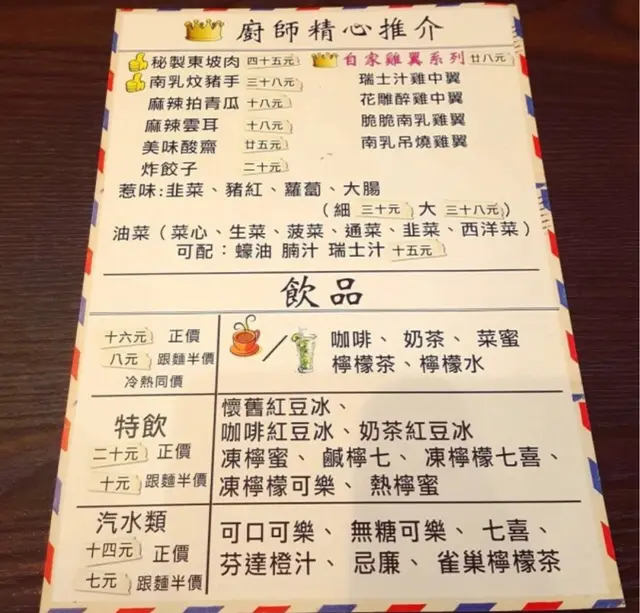 廚師精心推介
秘製東坡肉 四十五元
南乳炆豬手 三十八元
麻辣拍青瓜 十八元
麻辣雲耳 十八元
美味酸齋 廿五元
炸餃子 二十元
自家雞翼系列 廿八元
瑞士汁雞中翼
花雕醉雞中翼
脆脆南乳雞翼
南乳吊燒雞翼
惹味:韭菜、豬紅、蘿蔔、大腸
(細 三十元 大 三十八元)
油菜(菜心、生菜、菠菜、通菜、韭菜、西洋菜)
可配:蠔油 腩汁 瑞士汁 十五元
飲品
十六元 正價
八元 跟麵半價
冷熱同價
咖啡、 奶茶、 菜蜜
檸檬茶、檸檬水
特飲
二十元 正價
十元 跟麵半價
懷舊紅豆冰、
咖啡紅豆冰、奶茶紅豆冰
凍檸蜜、 鹹檸七、 凍檸檬七喜、
凍檸檬可樂、 熱檸蜜
汽水類
十四元 正價
七元 跟麵半價
可口可樂、 無糖可樂、 七喜、
芬達橙汁、 忌廉、 雀巢檸檬茶